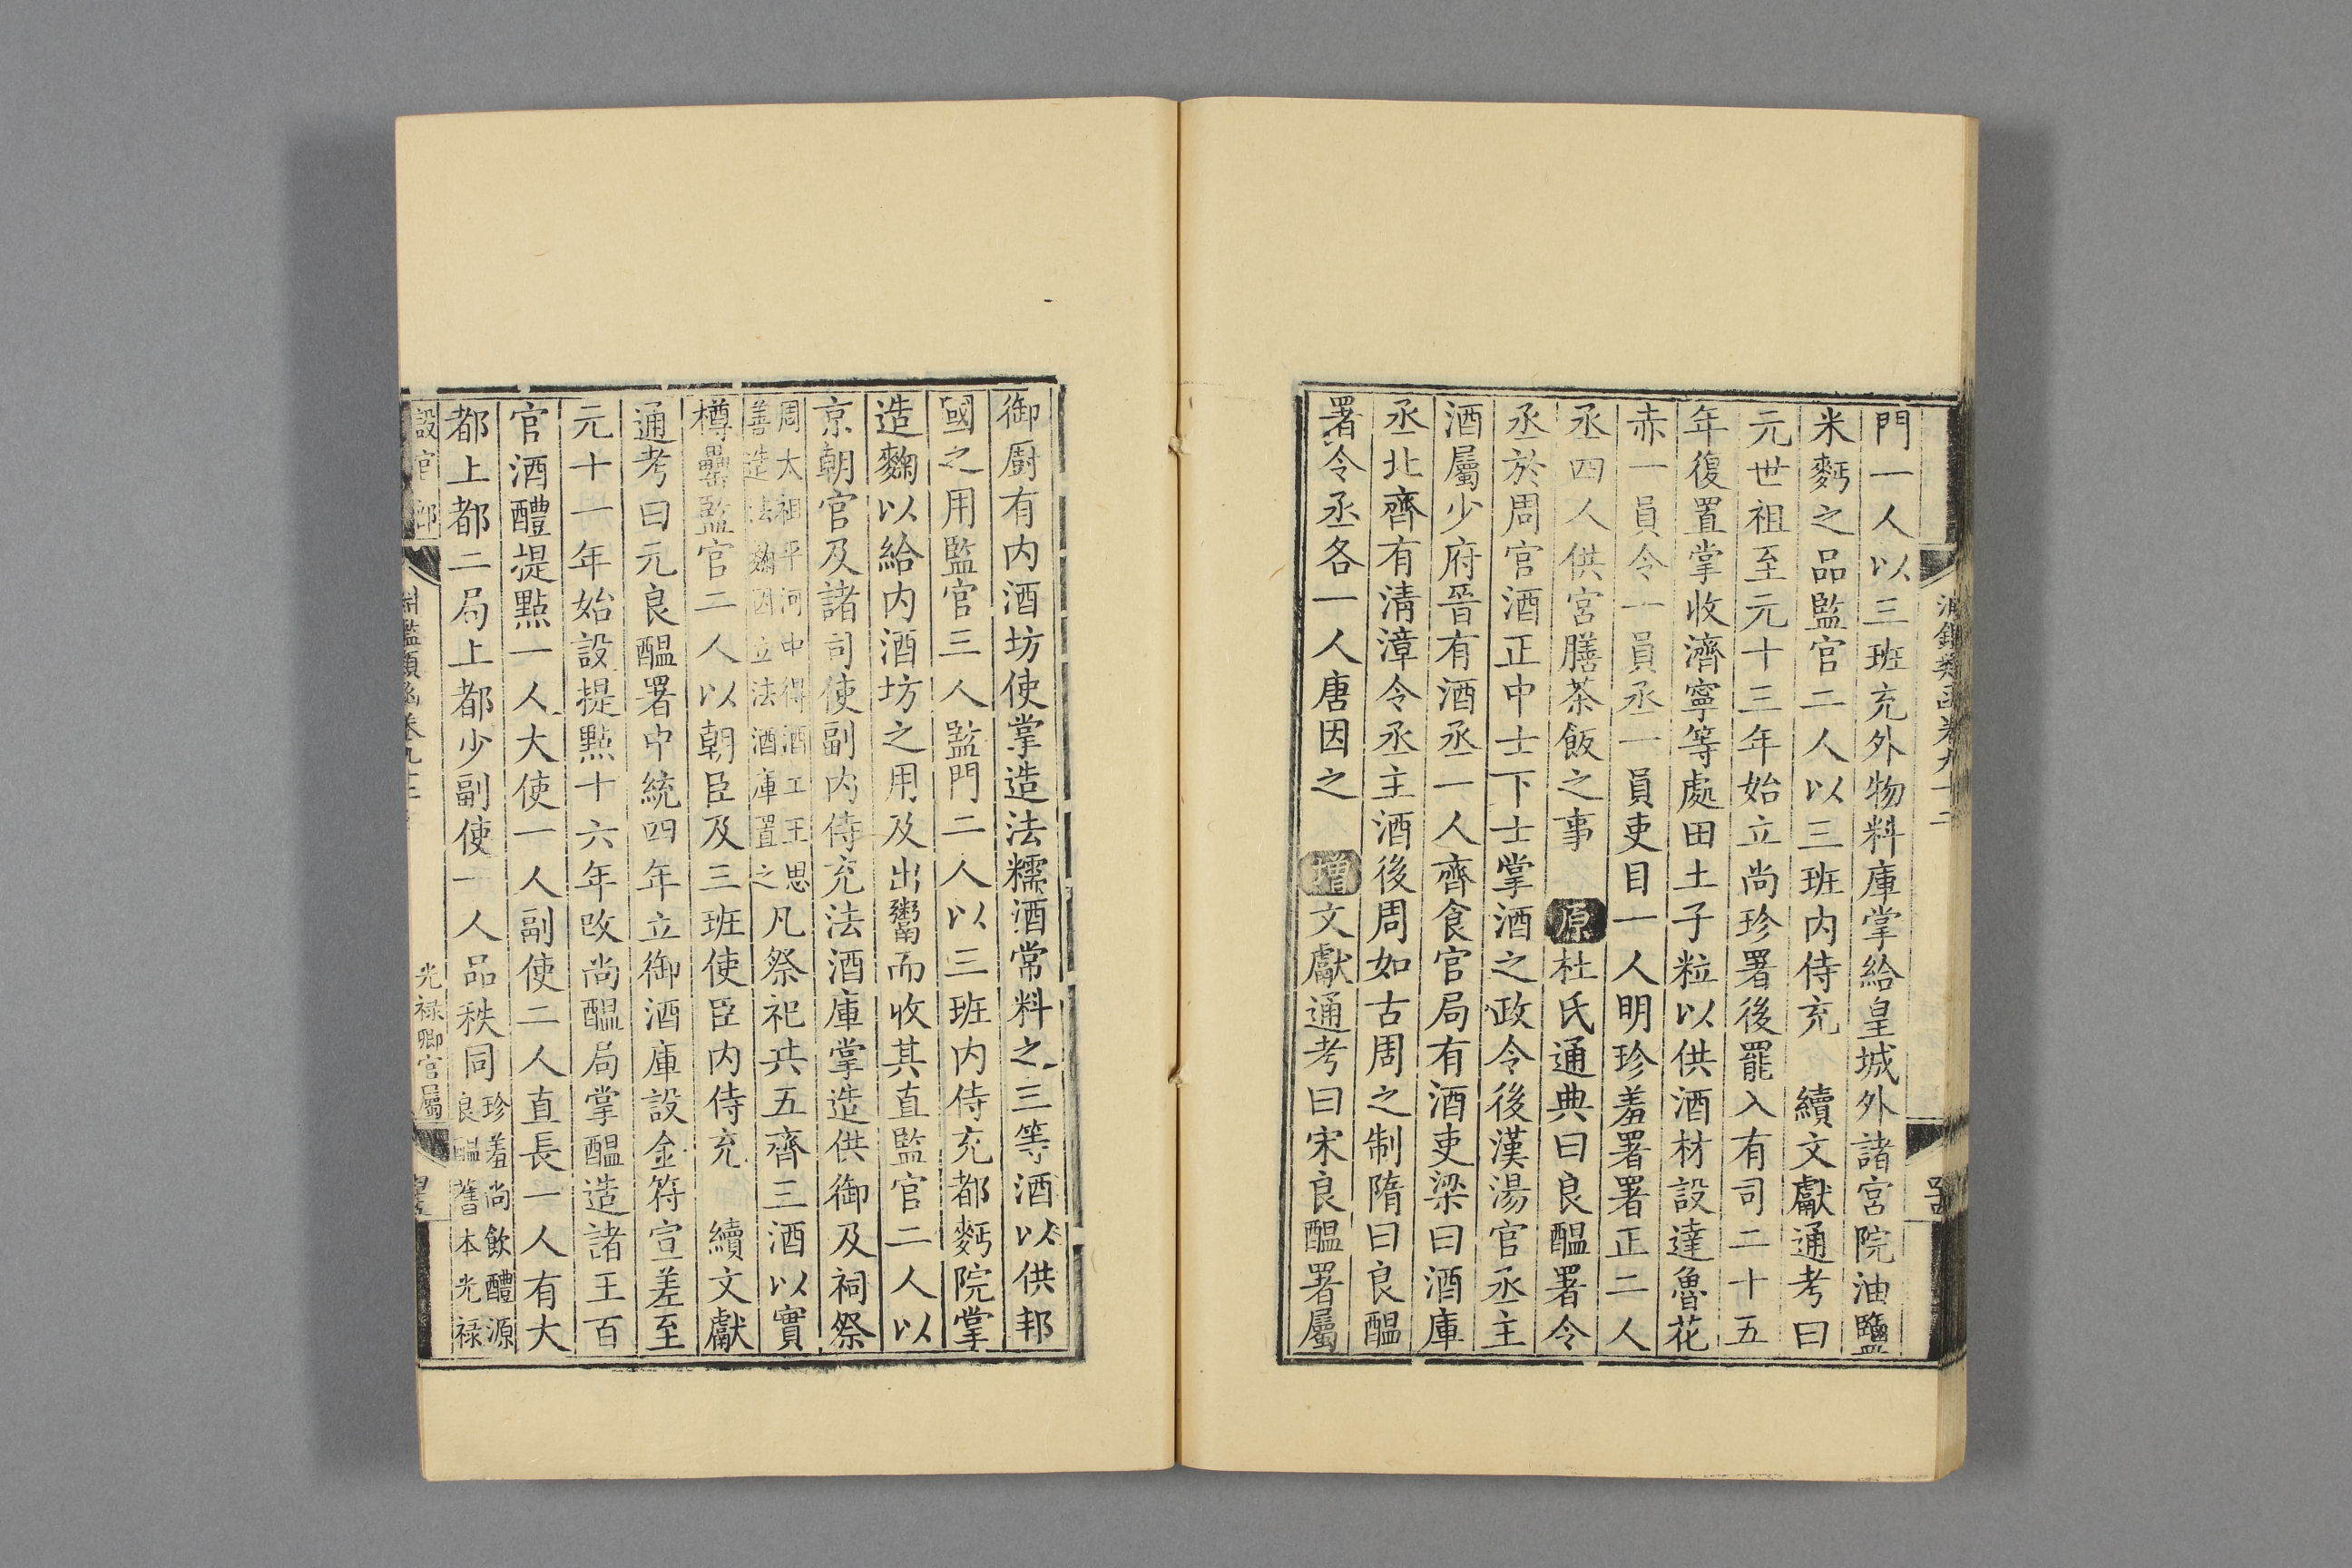 門一人以三班充外物料庫掌給皇城外諸宮院油鹽
米麫之品監官二人以三班内侍充　續文獻通考曰
元世祖至元十三年始立尚珍署後罷入有司二十五
年復置掌收濟寧等處田土子粒以供酒材設達魯花
赤一員令一員丞一員吏目一人明珍羞署署正二人
丞四人供宮膳茶飯之事　原杜氏通典曰良醞署令
丞於周官酒正中士下士掌酒之政令後漢湯官丞主
酒屬少府晉有酒丞一人齊食官局有酒吏梁曰酒庫
丞北齊有清漳令丞主酒後周如古周之制隋曰良醞
署令丞各一人唐因之　增文獻通考曰宋良醞署屬
御廚有内酒坊使掌造法糯酒常料之三等酒以供邦
國之用監官三人監門二人以三班内侍充都麫院掌
造麴以給内酒坊之用及出鬻而收其直監官二人以
京朝官及諸司使副内侍充法酒庫掌造供御及祠祭
周太祖平河中得酒工王思
善造法麴因立法酒庫置之
凡祭祀共五齊三酒以實
樽罍監官二人以朝臣及三班使臣内侍充　續文獻
通考曰元良醞署中統四年立御酒庫設金符宣差至
元十一年始設提點十六年改尚醞局掌醞造諸王百
官酒醴提點一人大使一人副使二人直長一人有大
都上都二局上都少副使一人品秩同
珍羞尚飲醴源
良醞舊本光祿
設官部
淵鑑類函卷九十二
光祿卿官屬